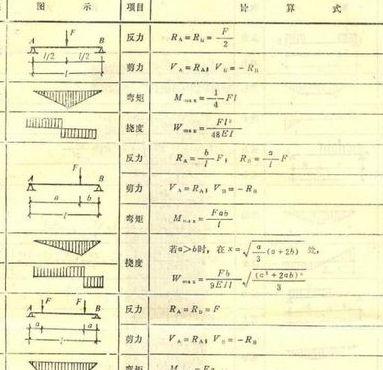 图 示 项目 计 算 式
A F B
l/2 l/2
l
反力 R_A = R_B = F/2
剪力 V_A = R_A; V_B = -R_B
弯矩 M_max = 1/4 Fl
挠度 W_max = Fl³/48EI
F
A B
a b
l
反力 R_A = b/l F; R_B = a/l F
剪力 V_A = R_A; V_B = -R_B
弯矩 M_max = Fab/l
挠度 若a>b时, 在 x = √(a/3 (a+2b)) 处,
W_max = Fb/9EIl √((a²+2ab)³/3)
A F F B
a a
l
反力 R_A = R_B = F
剪力 V_A = R_A; V_B = -R_B
弯矩 M_max = Fa